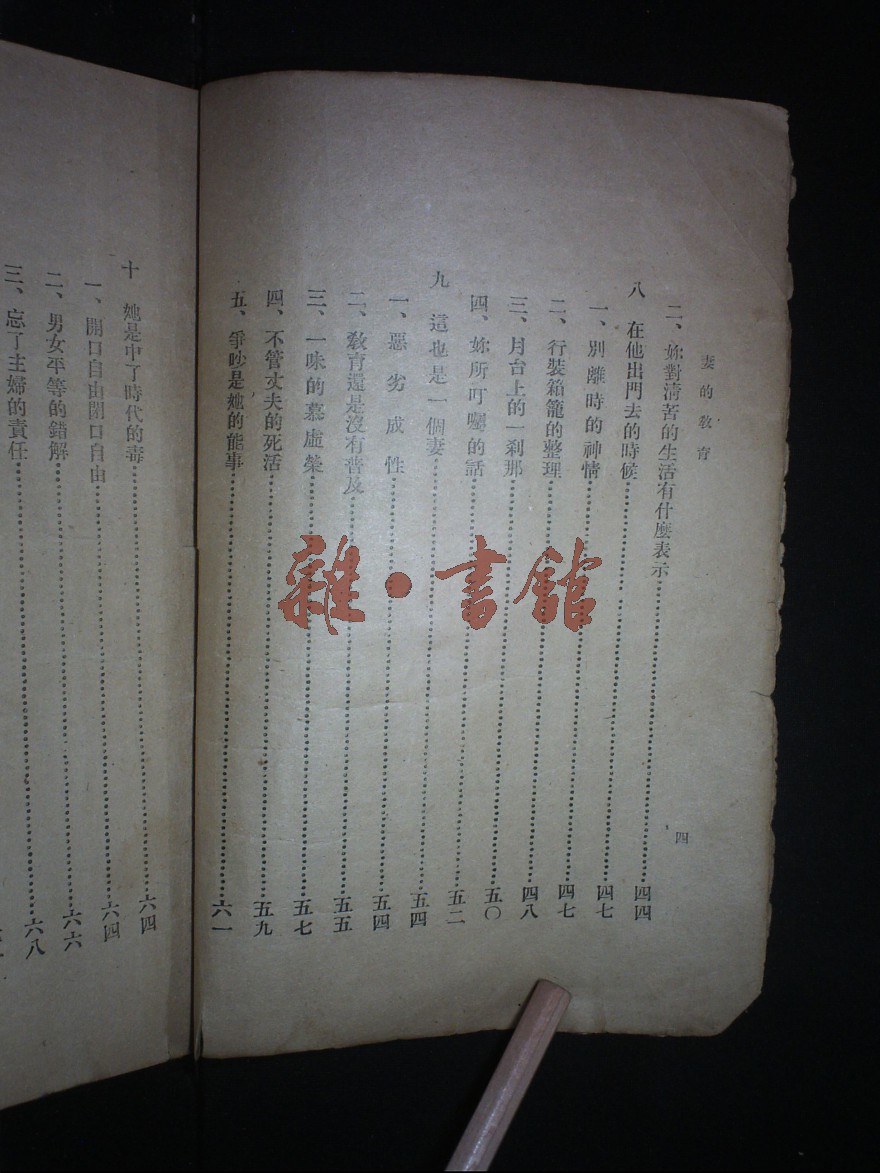 妻的教育
四
二、妳對淸苦的生活有什麼表示……四四
八 在他出門去的時候……四七
一、別離時的神情……四七
二、行裝箱籠的整理……四八
三、月台上的一刹那……五〇
四、妳所叮囑的話……五二
九 這也是一個妻……五四
一、惡劣成性……五四
二、教育還是沒有普及……五五
三、一味的慕虛榮……五七
四、不管丈夫的死活……五九
五、爭吵是她的能事……六一
十 她是中了時代的毒……六四
一、開口自由閉口自由……六四
二、男女平等的錯解……六六
三、忘了主婦的責任……六八
雜·書館